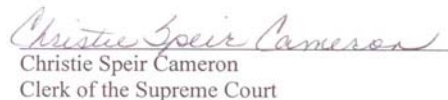 Christie Speir Cameron
Christie Speir Cameron
Clerk of the Supreme Court